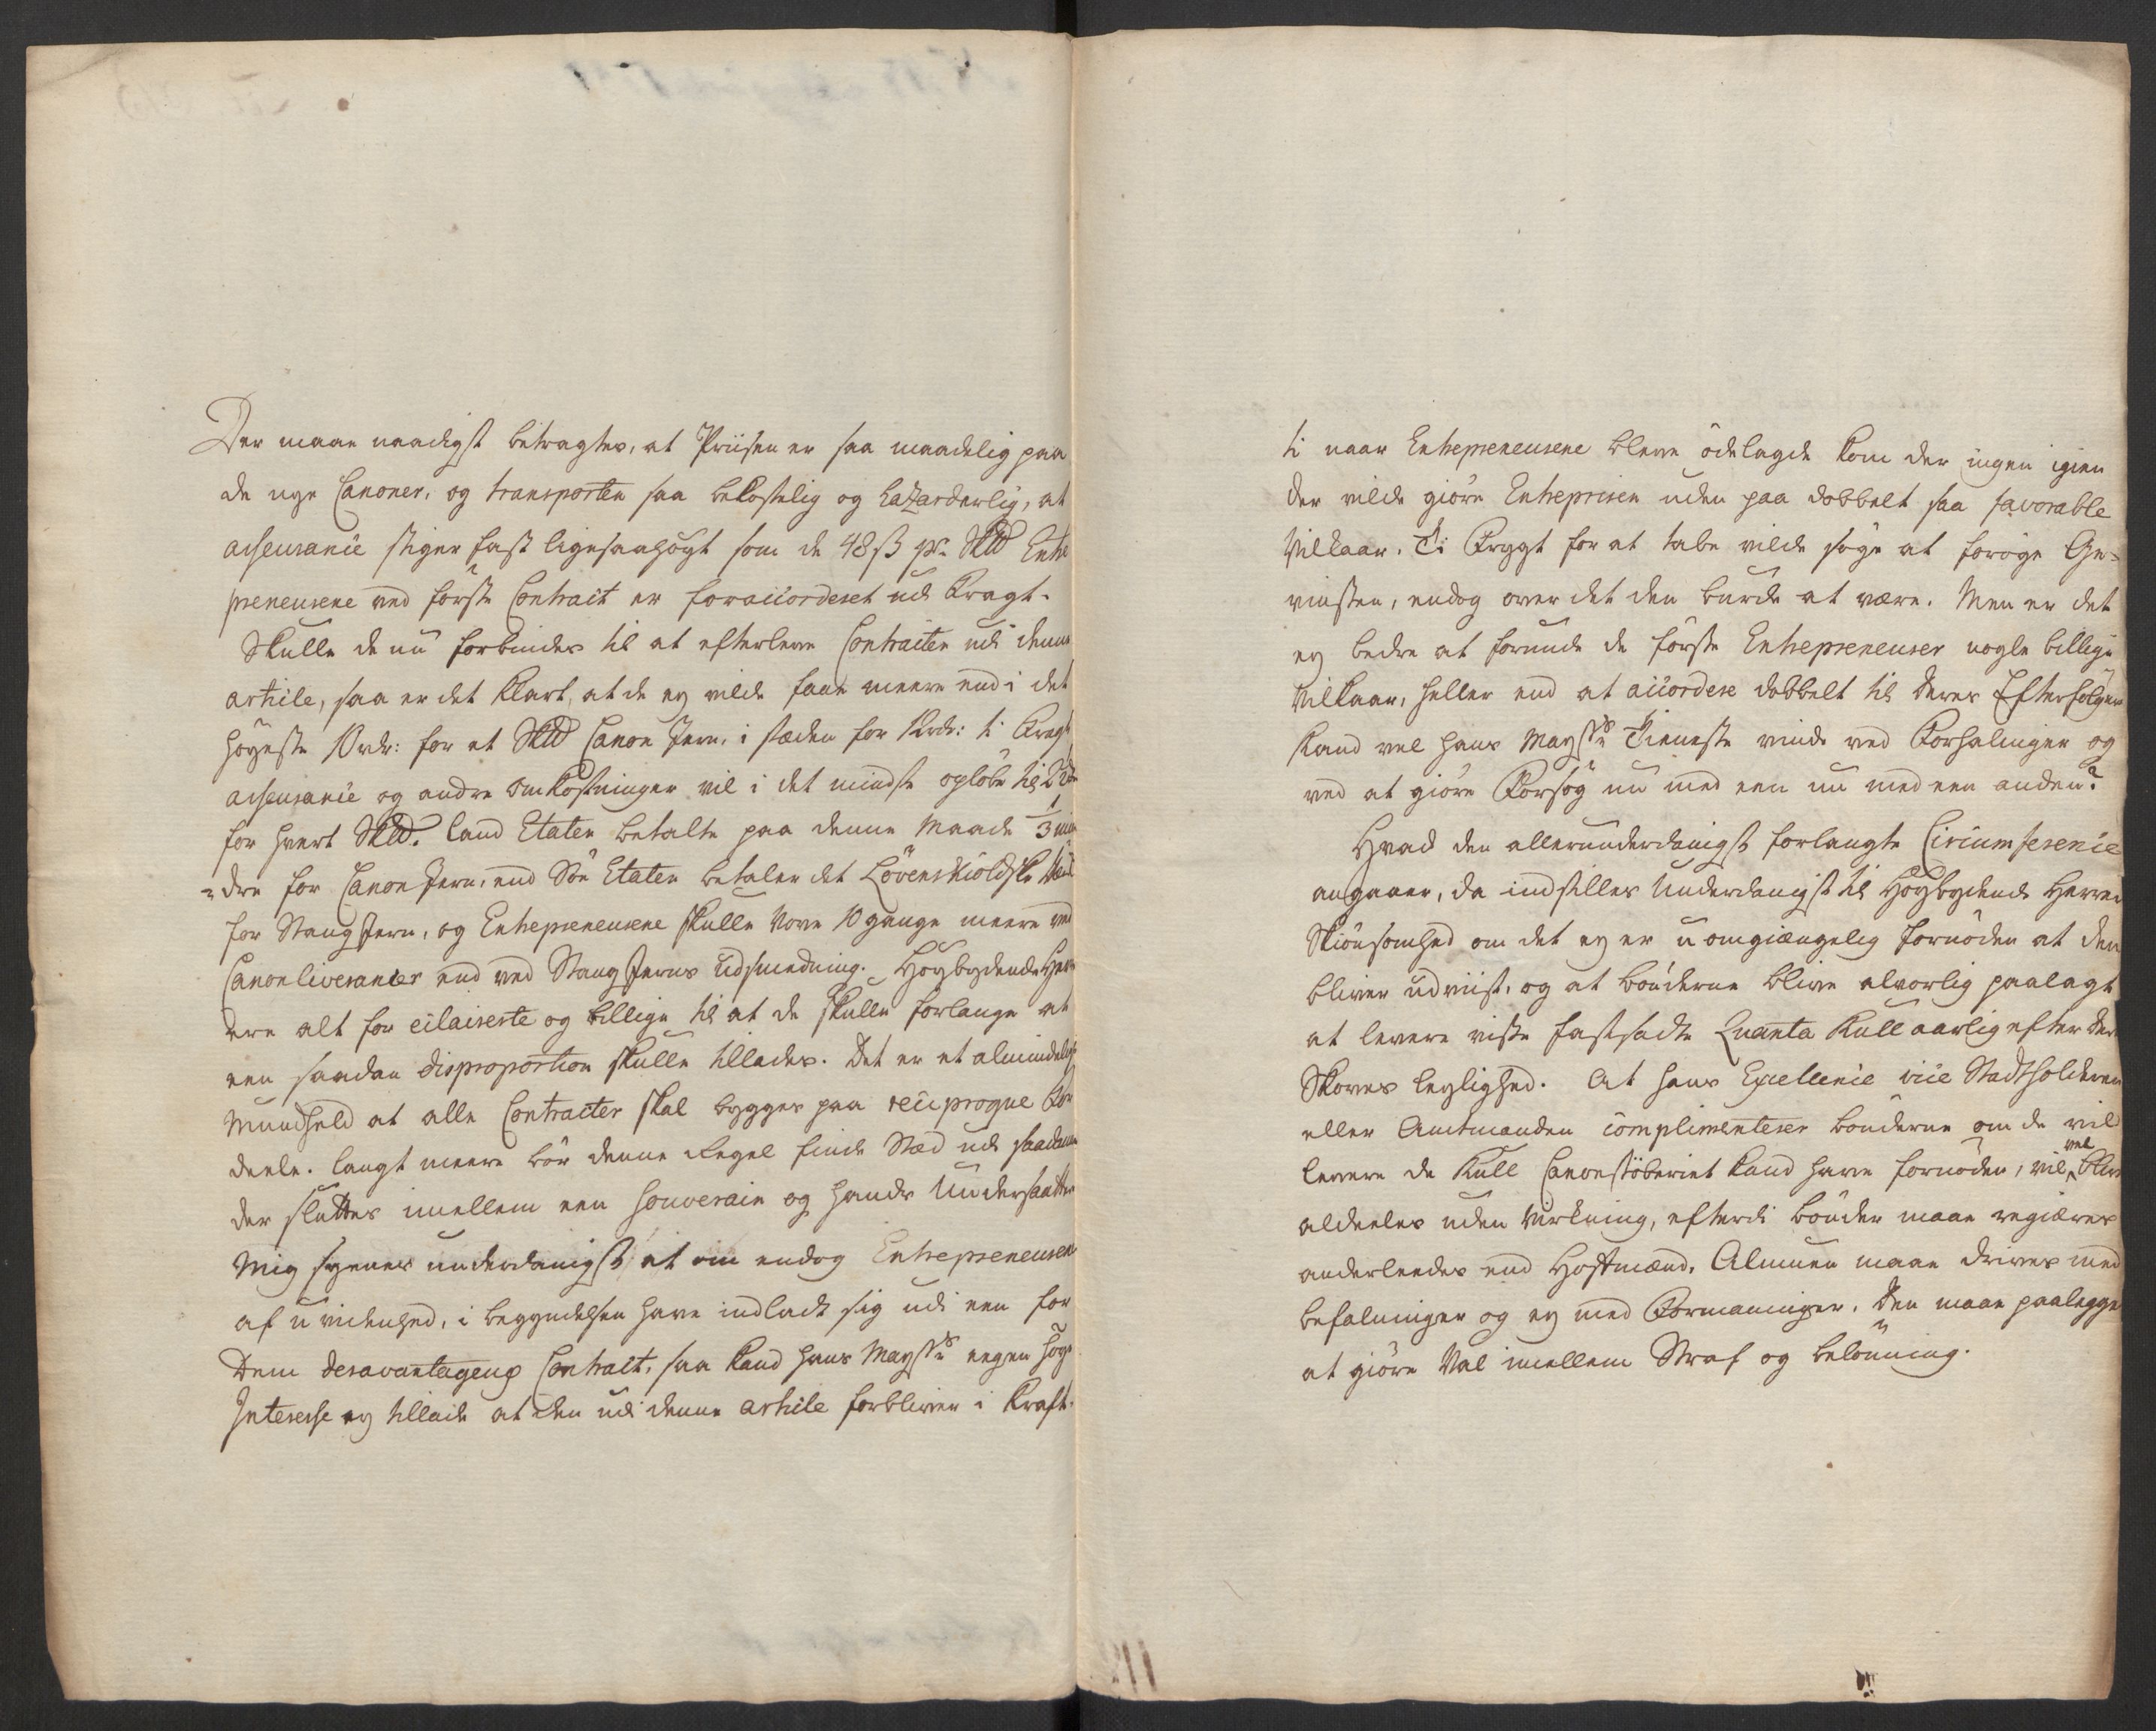 Der maae naadigst betragtes, at Priisen er saa maadelig paa
de nye Canoner, og transporten saa bekostelig og hazarderlig, at
asseurance stiger fast ligesaahøyt som de 48 ß pr. Sk℔ Entre
preneurene ved første Contract er foraccorderet udi Fragt.
Skulle de nu forbindes til at efterleve Contracten udi denne
article, saa er det klart, at de ey vilde faae meere end i det
høyeste 10 rdr: for et Sk℔ Canon Jern, i stæden for 12 rdr: ti Fragt
asseurance og andre Omkostninger vil i det mindste opløbe til 2 rdr
for hvert Sk℔. Land Etaten betalte paa denne Maade 1/3 min
-dre for Canon Jern, end Söe Etaten betaler det Lövenskioldske Værk
for Stang Jern, og Entrepreneurene skulle vove 10 gange meere ved
Canonliverancer end ved Stang Jerns Udsmedning. Høybydende Her
rer alt for eclairerte og billige til at de skulle forlange at
een saadan disproportion skulle tillades. Det er et almindeligt
Mundheld at alle Contracter skal bygges paa reciproque For
deele. Langt meere bør denne Regel finde Stæd udi saadanne
der sluttes imellem een Souverain og hands Undersaatter
Mig synes underdanigst, at om endog Entrepreneurene
af uvidenhed, i begyndelsen have indladt sig udi een for
Dem desavantageux Contract, saa kand hans Mayst:s egen høye
Interesse ey tillade at den udi denne article forbliver i Kraft.
ti naar Entrepreneurene bleve ödelagde kom der ingen igien
der vilde giöre Entreprisen uden paa dobbelt saa favorable
Vilkaar. Ti Frygt for at tabe vilde søge at forøge Ge-
vinsten, endog over det den burde at være. Men er det
ey bedre at forunde de første Entrepreneurer nogle billige
Vilkaar, heller end at accordere dobbelt til deres Efterfølgere
Kand vel hans Mayst:s Tieneste vinde ved Forhalinger og
ved at giøre Forsøg nu med een nu med een anden?
Hvad den allerunderdanigst forlangte Circumference
angaaer, da indstilles Underdanigst til Høybydende Herrers
Skiönsomhed om det ey er uomgiængelig fornøden at den
bliver udviist, og at bønderne blive alvorlig paalagt
at levere visse fastsadte Quanta Kull aarlig efter der
Skoves leylighed. At hans Excellence vice Stadtholderen
eller Amtmanden complimenterer bønderne om de vil
levere de Kull Canonstøberiet kand have fornöden, vil vel blive
aldeeles uden Virkning, efterdi bønder maae regiæres
anderleedes end Hoffmænd. Almuen maae drives med
befalninger og ey med Formaninger. Den maae paalegges
at giøre Val imellem Straf og belønning.